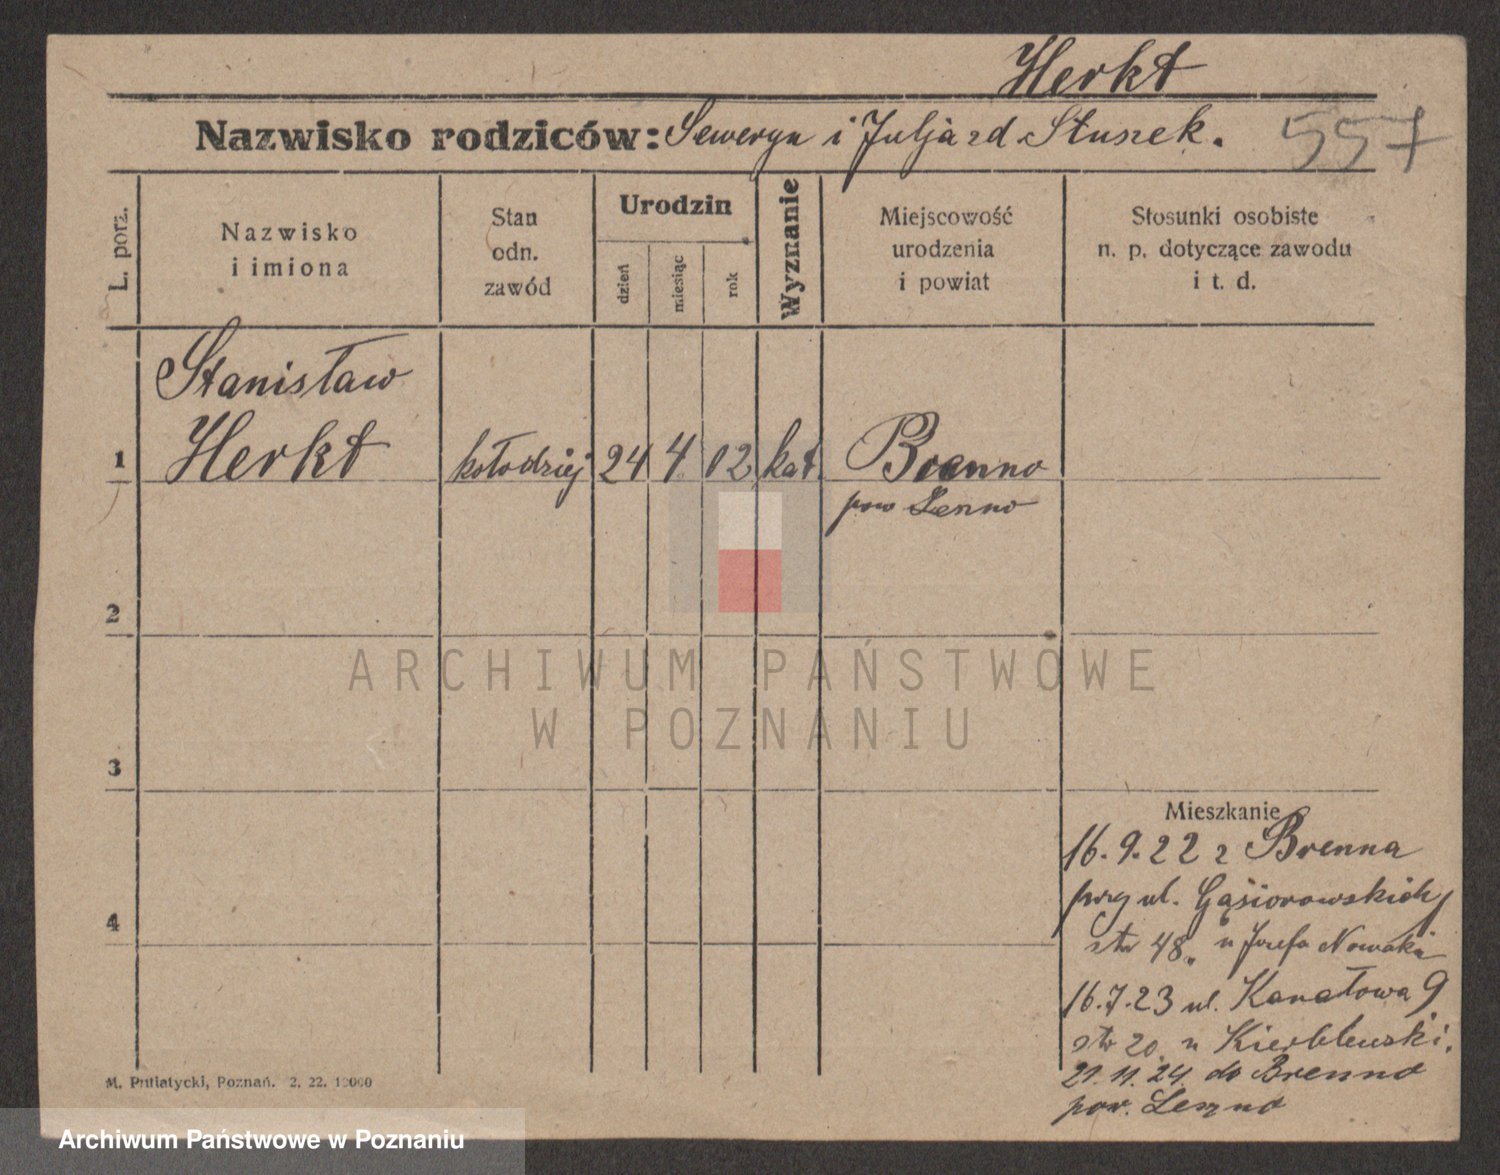 Herkt
Nazwisko rodziców: Seweryn i Julja zd Stuszek.
557
L. porz.
Nazwisko
i imiona
Stan
odn.
zawód
Urodzin
dzień
miesiąc
rok
Wyznanie
Miejscowość
urodzenia
i powiat
Stosunki osobiste
n. p. dotyczące zawodu
i t. d.
Stanisław
1 Herkt kołodziej 24 4 02 kat. Brenno
pow Leszno
2
3
4
ARCHIWUM PAŃSTWOWE
W POZNANIU
Mieszkanie
16.9.22 z Brenna
przy ul. Gąsiorowskich
str 48. u Józefa Nowaka
16.7.23 ul. Kanałowa 9
str 20. u
21.11.24. do Brenno
pow. Leszno
M. Putiatycki, Poznań. 2. 22. 10000
Archiwum Państwowe w Poznaniu